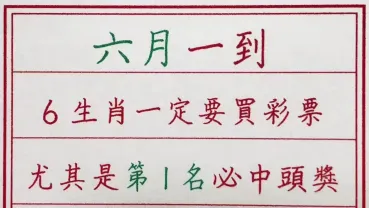 六月一到
6生肖一定要買彩票
尤其是第1名必中頭獎